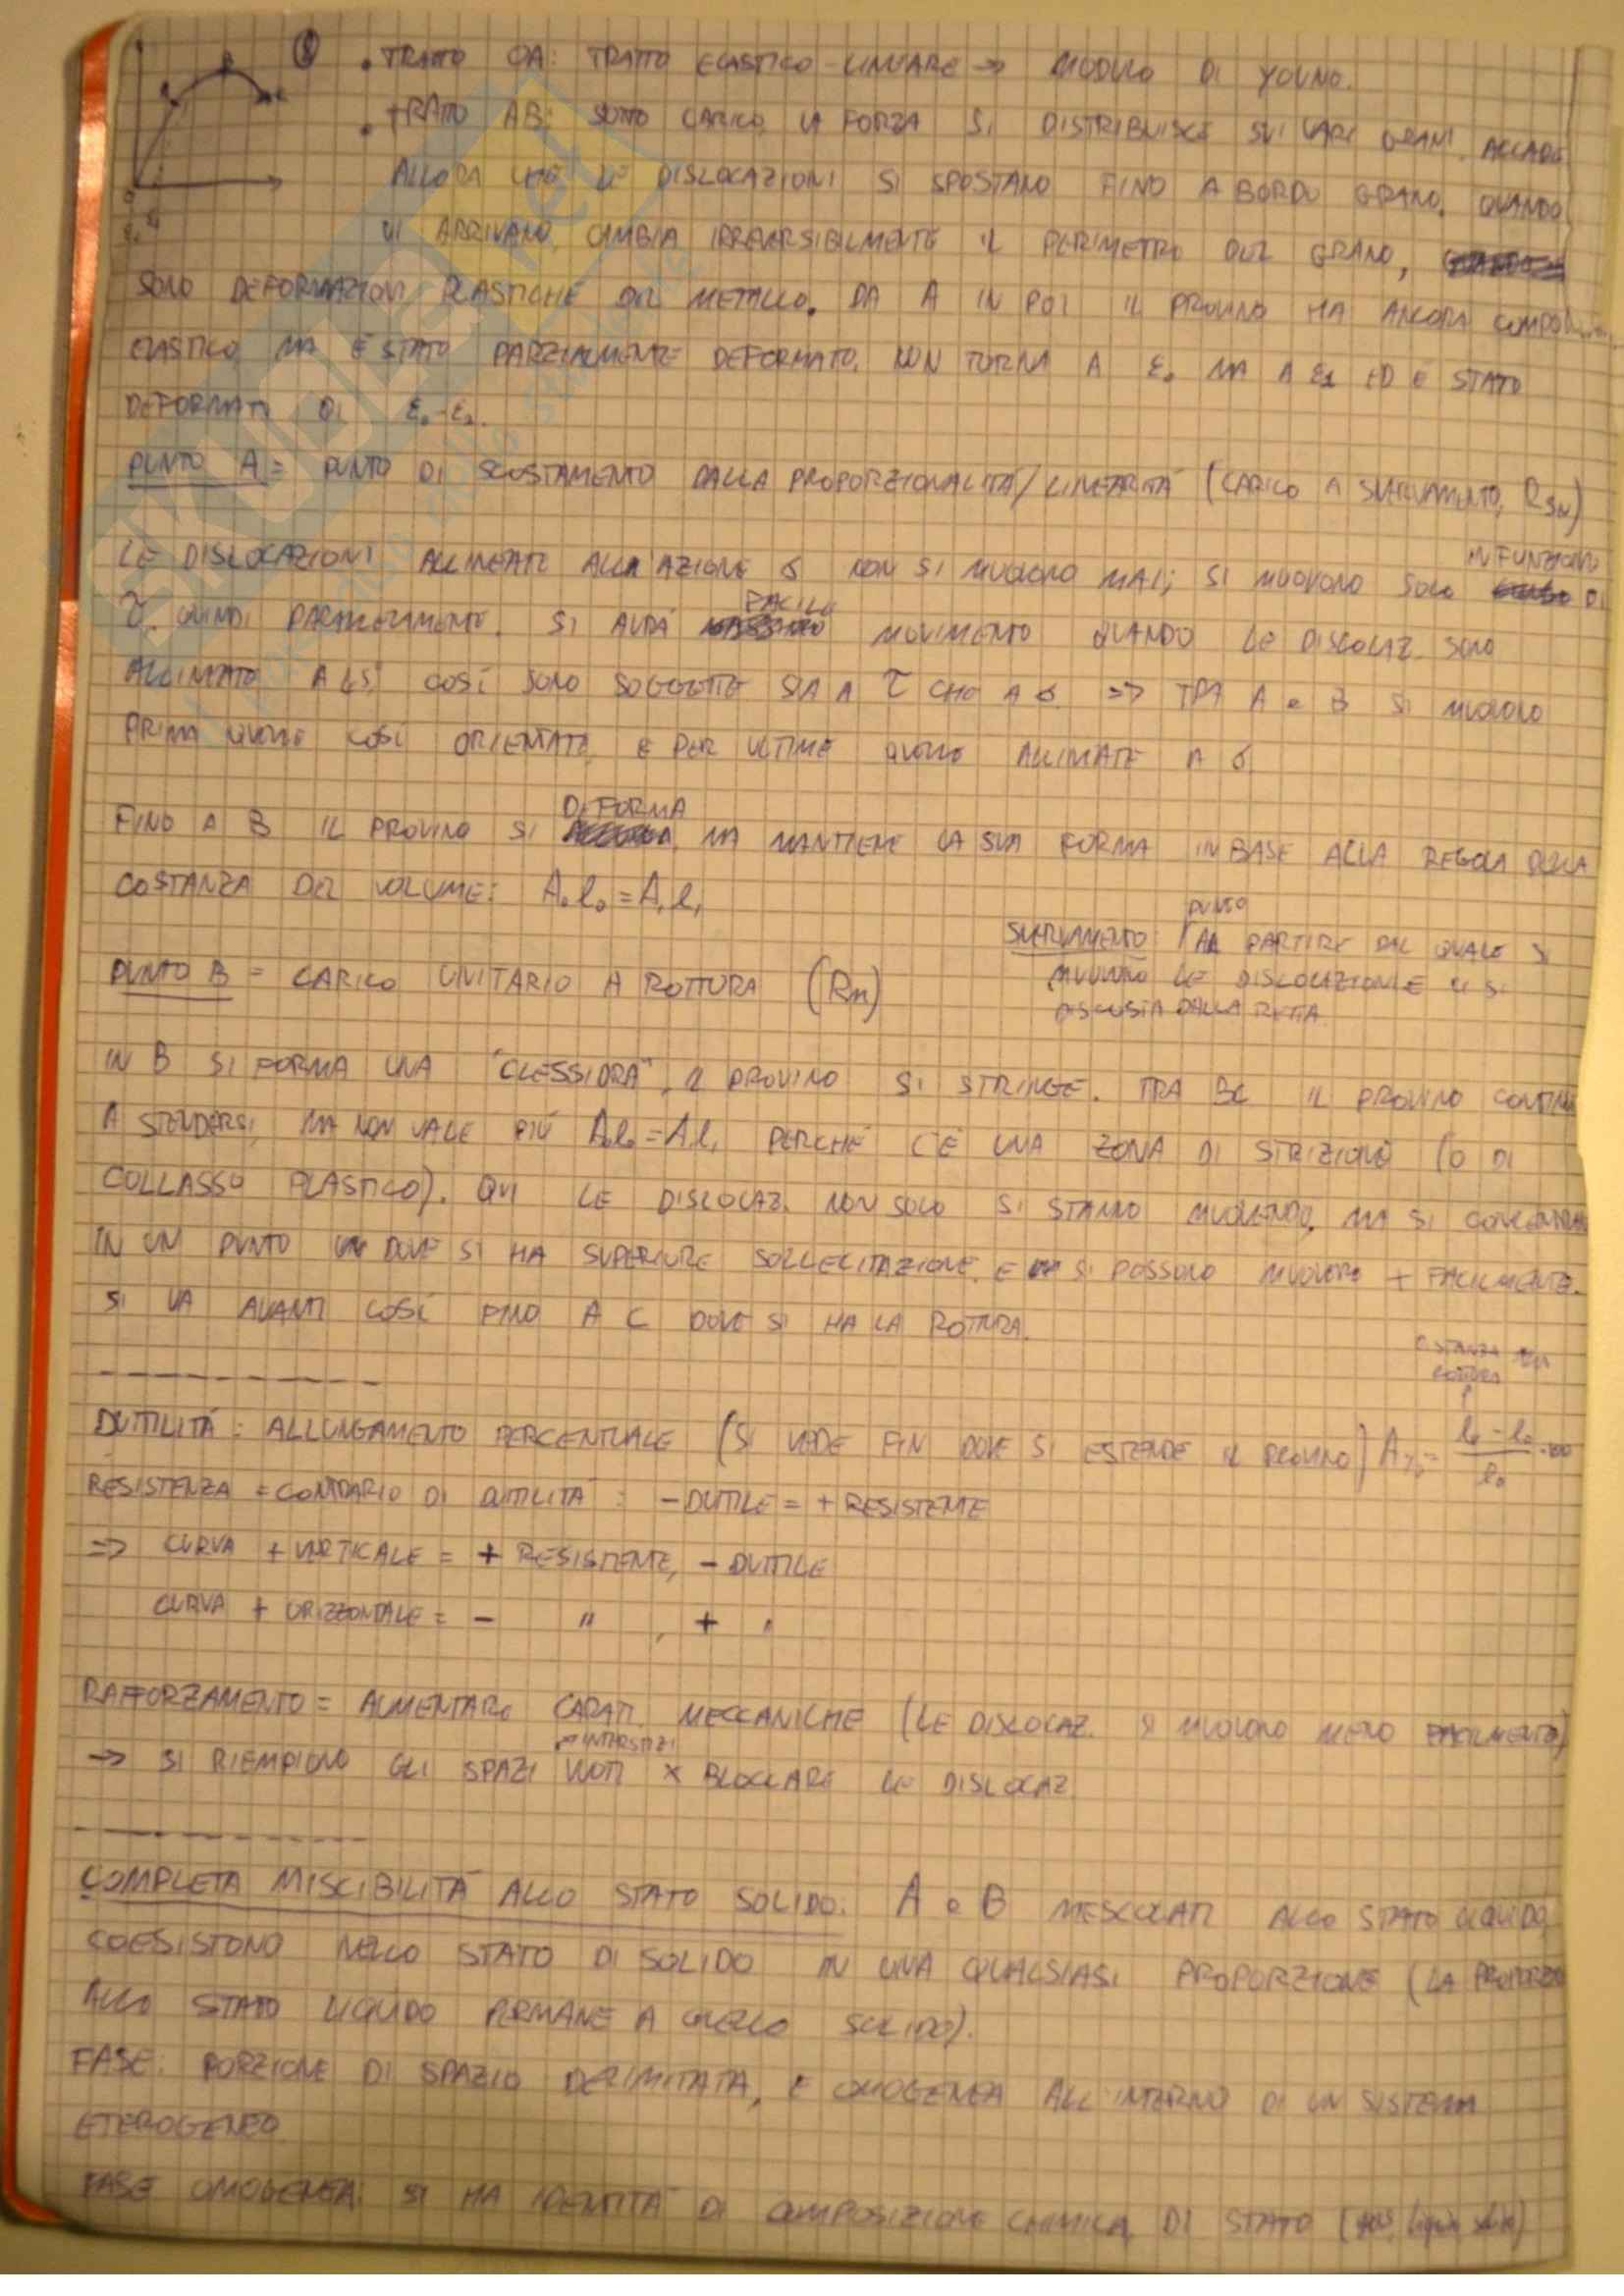 • TRATTO OA: TRATTO ELASTICO-LINEARE → MODULO DI YOUNG.
• TRATTO AB: SOTTO CARICO, LA FORZA SI DISTRIBUISCE SUI VARI GRANI. ACCADE
ALLORA CHE LE DISLOCAZIONI SI SPOSTANO FINO A BORDO GRANO. QUANDO
VI ARRIVANO, CAMBIA IRREVERSIBILMENTE IL PERIMETRO DEL GRANO,
SONO DEFORMAZIONI PLASTICHE DEL METALLO. DA A IN POI IL PROVINO HA ANCORA
ELASTICO, MA È STATO PARZIALMENTE DEFORMATO, NON TORNA A ε₀ MA A ε₁ ED È STATO
DEFORMATO DI
PUNTO A = PUNTO DI SCOSTAMENTO DALLA PROPORZIONALITÀ/LINEARITÀ (CARICO A SNERVAMENTO, RSN)
IN FUNZIONE
LE DISLOCAZIONI ALLINEATE ALLA AZIONE σ NON SI MUOVONO MAI; SI MUOVONO SOLO DI
FACILE
τ, QUINDI PARALLELAMENTE. SI AVRÀ MOVIMENTO QUANDO LE DISLOCAZ. SONO
ALLINEATE A 45°, COSÌ SONO SOGGETTE SIA A τ CHE A σ => TRA A e B SI MUOVONO
PRIMA QUELLE COSÌ ORIENTATE, E PER ULTIME QUELLE ALLINEATE A σ
DEFORMA
FINO A B IL PROVINO SI MA MANTIENE LA SUA FORMA IN BASE ALLA REGOLA DELLA
COSTANZA DEL VOLUME: A₀l₀=A₁l₁
PUNTO
SNERVAMENTO: A PARTIRE DAL QUALE SI
MUOVONO LE DISLOCAZIONI E CI SI
DISCOSTA DALLA RETTA
PUNTO B = CARICO UNITARIO A ROTTURA (Rm)
IN B SI FORMA UNA "CLESSIDRA", IL PROVINO SI STRINGE. TRA BC IL PROVINO CONTINUA
A STENDERSI, MA NON VALE PIÙ A₀l₀=A₁l₁ PERCHÉ C'È UNA ZONA DI STRIZIONE (O DI
COLLASSO PLASTICO). QUI LE DISLOCAZ. NON SOLO SI STANNO MUOVENDO, MA SI CONCENTRANO
IN UN PUNTO DOVE SI HA SUPERIORE SOLLECITAZIONE. E SI POSSONO MUOVERE + FACILMENTE.
SI VA AVANTI COSÌ FINO A C DOVE SI HA LA ROTTURA.
DUTTILITÀ: ALLUNGAMENTO PERCENTUALE (SI VEDE FIN DOVE SI ESTENDE IL PROVINO) A%=
RESISTENZA = CONTRARIO DI DUTTILITÀ: - DUTTILE = + RESISTENTE
=> CURVA + VERTICALE = + RESISTENTE, - DUTTILE
CURVA + ORIZZONTALE = - " , + "
RAFFORZAMENTO = AUMENTARE CARATT. MECCANICHE (LE DISLOCAZ. SI MUOVONO MENO FACILMENTE)
INTERSTIZI
→ SI RIEMPIONO GLI SPAZI VUOTI X BLOCCARE LE DISLOCAZ.
COMPLETA MISCIBILITÀ ALLO STATO SOLIDO: A e B MESCOLATI ALLO STATO LIQUIDO,
COESISTONO NELLO STATO DI SOLIDO IN UNA QUALSIASI PROPORZIONE (LA PROPORZIONE
ALLO STATO LIQUIDO PERMANE A QUELLO SOLIDO).
FASE: PORZIONE DI SPAZIO DELIMITATA, E OMOGENEA ALL'INTERNO DI UN SISTEMA
ETEROGENEO
FASE OMOGENEA: SI HA IDENTITÀ DI COMPOSIZIONE CHIMICA, DI STATO